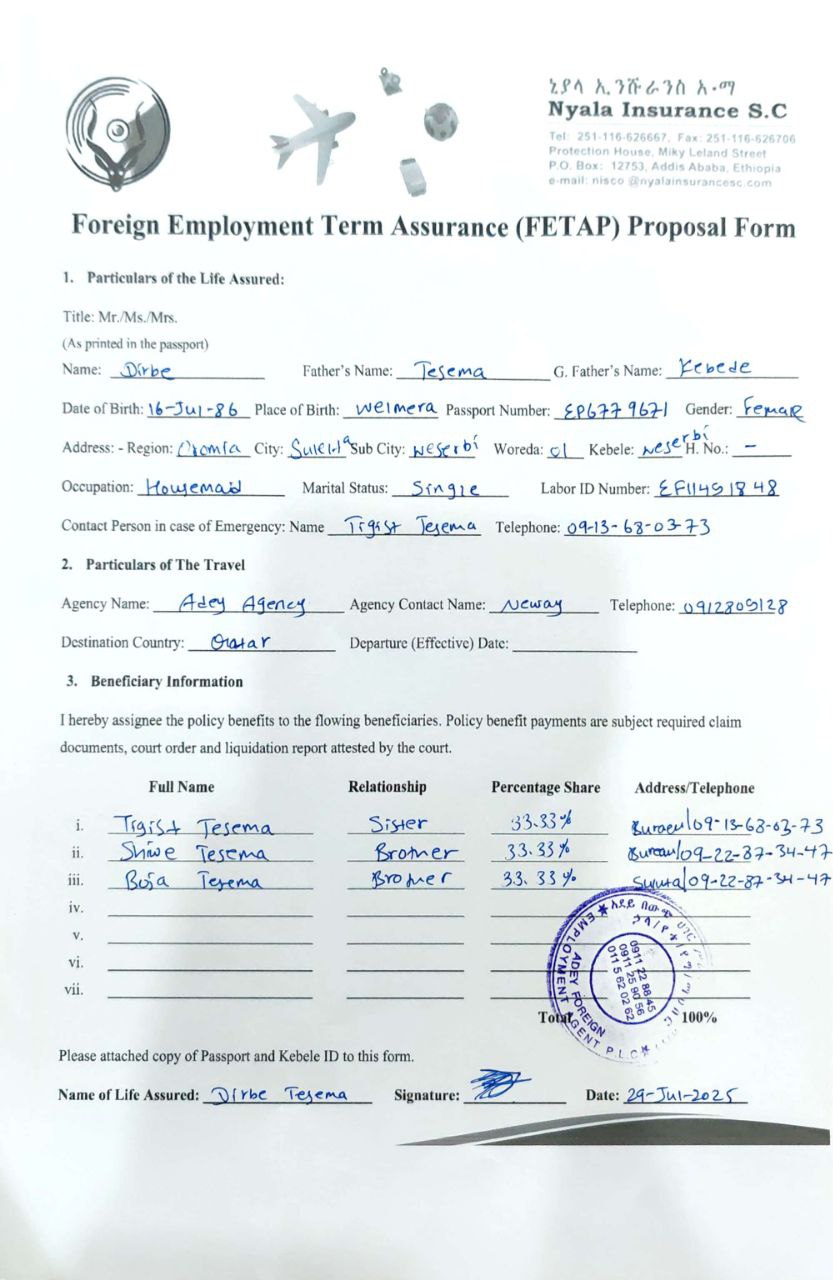 ኒያላ ኢንሹራንስ አ.ማ
Nyala Insurance S.C
Tel: 251-116-626667, Fax: 251-116-626706
Protection House, Miky Leland Street
P.O. Box: 12753, Addis Ababa, Ethiopia
e-mail: nisco @nyalainsurancesc.com
Foreign Employment Term Assurance (FETAP) Proposal Form
1. Particulars of the Life Assured:
Title: Mr./Ms./Mrs.
(As printed in the passport)
Name: Dirbe Father's Name: Tesema G. Father's Name: Kebede
Date of Birth: 16-Jul-86 Place of Birth: Welmera Passport Number: EP6779671 Gender: Female
Address: - Region: Oromia City: Sululta Sub City: Weserbi Woreda: 01 Kebele: Weserbi H. No.: -
Occupation: Housemaid Marital Status: Single Labor ID Number: EF11491848
Contact Person in case of Emergency: Name Tigist Tesema Telephone: 09-13-68-03-73
2. Particulars of The Travel
Agency Name: Adey Agency Agency Contact Name: Neway Telephone: 0912809128
Destination Country: Qatar Departure (Effective) Date:
3. Beneficiary Information
I hereby assignee the policy benefits to the flowing beneficiaries. Policy benefit payments are subject required claim
documents, court order and liquidation report attested by the court.
Full Name Relationship Percentage Share Address/Telephone
i. Tigist Tesema Sister 33.33% Burayu/09-13-68-03-73
ii. Shiwe Tesema Brother 33.33% Burayu/09-22-87-34-47
iii. Buja Tesema Brother 33.33% Sululta/09-22-87-34-47
iv.
v.
vi.
vii.
Total 100%
ADEY FOREIGN EMPLOYMENT AGENT P.L.C
0911 22 88 45
0911 25 90 56
011 5 62 02 62
Please attached copy of Passport and Kebele ID to this form.
Name of Life Assured: Dirbe Tesema Signature: Date: 29-Jul-2025